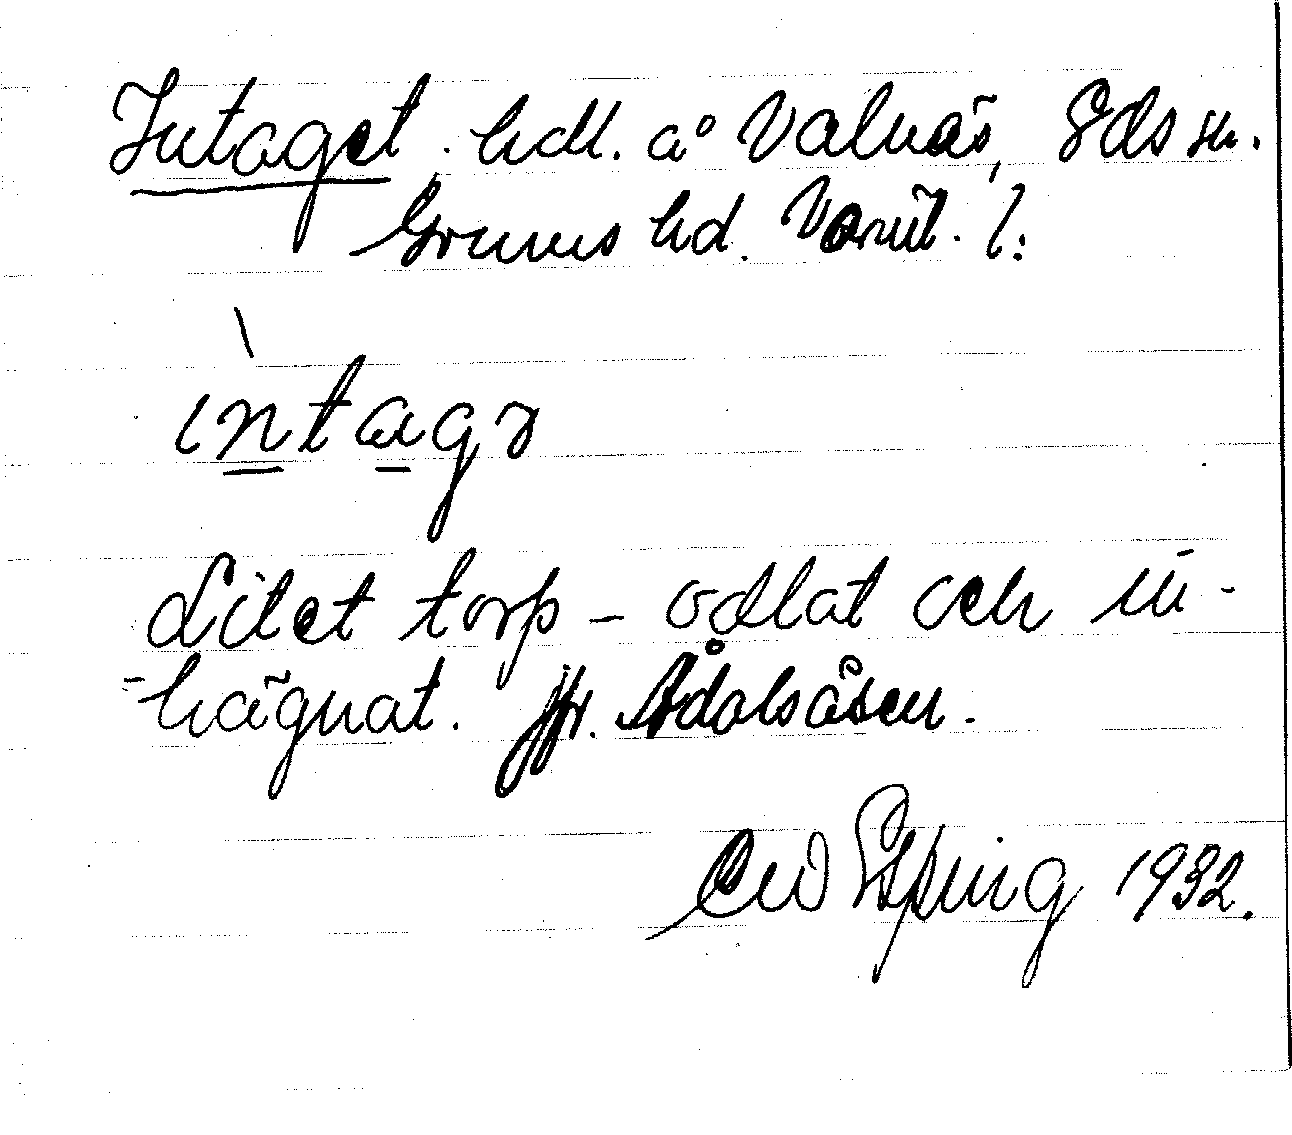 Intaget. hdl. å Valnäs, Eds sn.
Grums hd. Värml. l.
ìntagɘ
Litet torp – odlat och in-
-hägnat. Jfr. Ådalsåsen.
C W Epping 1932.